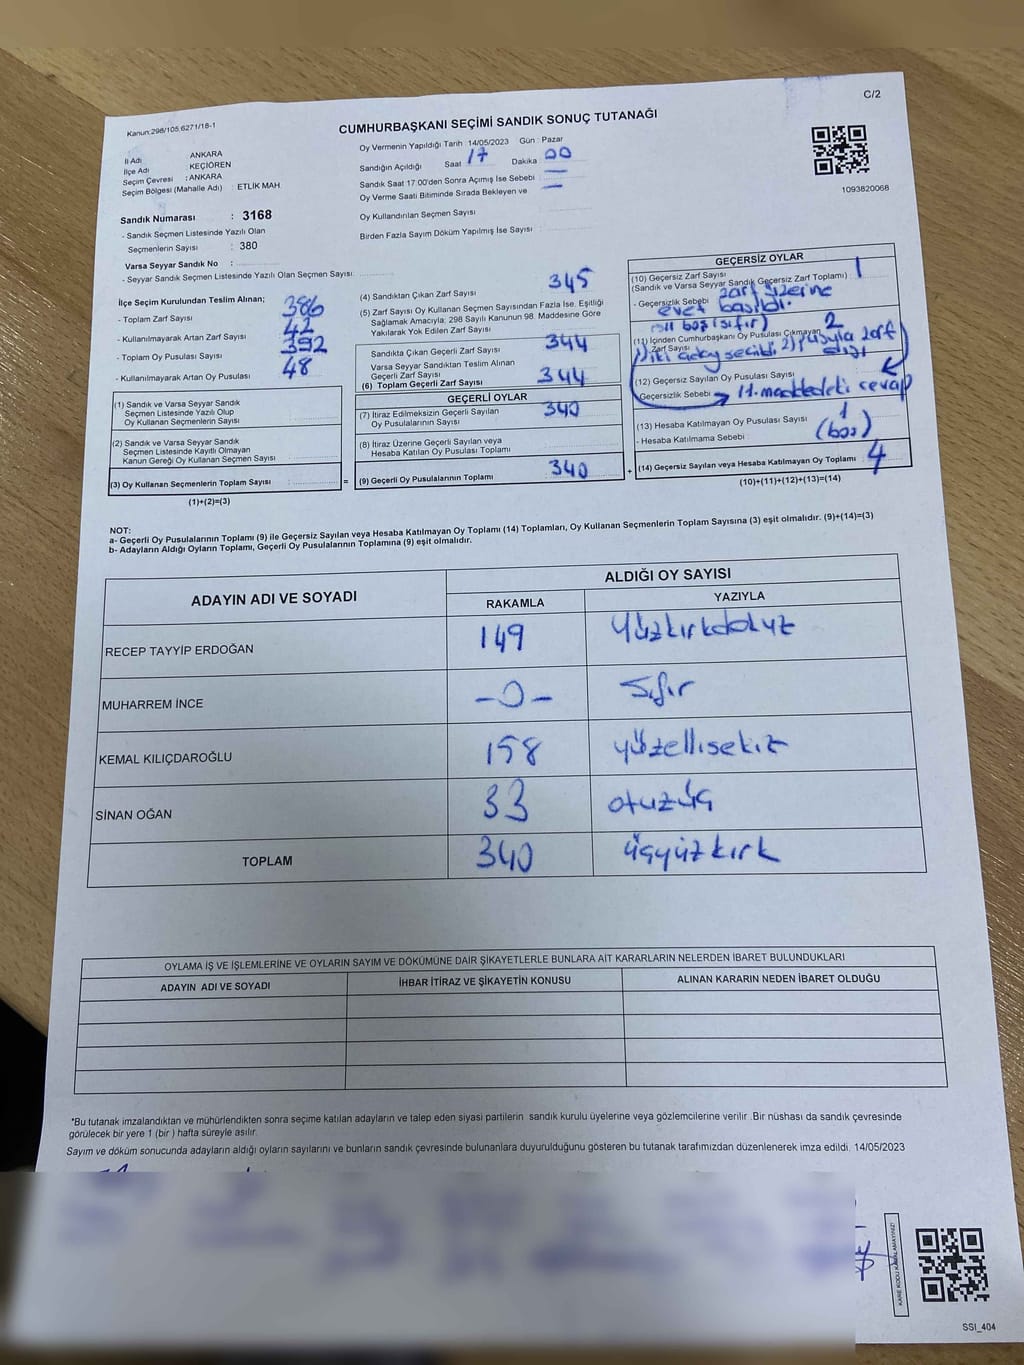 C/2
Kanun:298/105,6271/18-1
CUMHURBAŞKANI SEÇİMİ SANDIK SONUÇ TUTANAĞI
1093820068
İl Adı ANKARA
İlçe Adı KEÇİÖREN
Seçim Çevresi : ANKARA
Seçim Bölgesi (Mahalle Adı) : ETLİK MAH
Sandık Numarası : 3168
- Sandık Seçmen Listesinde Yazılı Olan
Seçmenlerin Sayısı : 380
Varsa Seyyar Sandık No :
- Seyyar Sandık Seçmen Listesinde Yazılı Olan Seçmen Sayısı:
Oy Vermenin Yapıldığı Tarih 14/05/2023 Gün : Pazar
Sandığın Açıldığı Saat 17 Dakika 00
Sandık Saat 17:00'den Sonra Açımış İse Sebebi : —
Oy Verme Saati Bitiminde Sırada Bekleyen ve —
Oy Kullandırılan Seçmen Sayısı
Birden Fazla Sayım Döküm Yapılmış İse Sayısı :
İlçe Seçim Kurulundan Teslim Alınan;
- Toplam Zarf Sayısı 386
- Kullanılmayarak Artan Zarf Sayısı 42
- Toplam Oy Pusulası Sayısı 392
- Kullanılmayarak Artan Oy Pusulası 48
(1) Sandık ve Varsa Seyyar Sandık
Seçmen Listesinde Yazılı Olup
Oy Kullanan Seçmenlerin Sayısı
(2) Sandık ve Varsa Seyyar Sandık
Seçmen Listesinde Kayıtlı Olmayan
Kanun Gereği Oy Kullanan Seçmen Sayısı
(3) Oy Kullanan Seçmenlerin Toplam Sayısı : =
(1)+(2)=(3)
(4) Sandıktan Çıkan Zarf Sayısı 345
(5) Zarf Sayısı Oy Kullanan Seçmen Sayısından Fazla İse, Eşitliği
Sağlamak Amacıyla; 298 Sayılı Kanunun 98. Maddesine Göre
Yakılarak Yok Edilen Zarf Sayısı
Sandıkta Çıkan Geçerli Zarf Sayısı 344
Varsa Seyyar Sandıktan Teslim Alınan
Geçerli Zarf Sayısı
(6) Toplam Geçerli Zarf Sayısı 344
GEÇERLİ OYLAR
(7) İtiraz Edilmeksizin Geçerli Sayılan
Oy Pusulalarının Sayısı 340
(8) İtiraz Üzerine Geçerli Sayılan veya
Hesaba Katılan Oy Pusulası Toplamı
(9) Geçerli Oy Pusulalarının Toplamı 340 +
GEÇERSİZ OYLAR
(10) Geçersiz Zarf Sayısı 1
(Sandık ve Varsa Seyyar Sandık Geçersiz Zarf Toplamı)
- Geçersizlik Sebebi zarf üzerine
evet basıldı.
boş (sıfır)
(11) İçinden Cumhurbaşkanı Oy Pusulası Çıkmayan 2
Zarf Sayısı
1) iki aday seçildi 2) pusula zarf
(12) Geçersiz Sayılan Oy Pusulası Sayısı
Geçersizlik Sebebi 11. maddedeki cevap
(13) Hesaba Katılmayan Oy Pusulası Sayısı 1
- Hesaba Katılmama Sebebi : (boş)
(14) Geçersiz Sayılan veya Hesaba Katılmayan Oy Toplamı : 4
(10)+(11)+(12)+(13)=(14)
NOT:
a- Geçerli Oy Pusulalarının Toplamı (9) ile Geçersiz Sayılan veya Hesaba Katılmayan Oy Toplamı (14) Toplamları, Oy Kullanan Seçmenlerin Toplam Sayısına (3) eşit olmalıdır. (9)+(14)=(3)
b- Adayların Aldığı Oyların Toplamı, Geçerli Oy Pusulalarının Toplamına (9) eşit olmalıdır.
ADAYIN ADI VE SOYADI ALDIĞI OY SAYISI
RAKAMLA YAZIYLA
RECEP TAYYİP ERDOĞAN 149 Yüzkırkdokuz
MUHARREM İNCE -0- Sıfır
KEMAL KILIÇDAROĞLU 158 yüzellisekiz
SİNAN OĞAN 33 otuzüç
TOPLAM 340 üçyüzkırk
OYLAMA İŞ VE İŞLEMLERİNE VE OYLARIN SAYIM VE DÖKÜMÜNE DAİR ŞİKAYETLERLE BUNLARA AİT KARARLARIN NELERDEN İBARET BULUNDUKLARI
ADAYIN ADI VE SOYADI İHBAR İTİRAZ VE ŞİKAYETİN KONUSU ALINAN KARARIN NEDEN İBARET OLDUĞU
*Bu tutanak imzalandıktan ve mühürlendikten sonra seçime katılan adayların ve talep eden siyasi partilerin sandık kurulu üyelerine veya gözlemcilerine verilir .Bir nüshası da sandık çevresinde
görülecek bir yere 1 (bir ) hafta süreyle asılır.
Sayım ve döküm sonucunda adayların aldığı oyların sayılarını ve bunların sandık çevresinde bulunanlara duyurulduğunu gösteren bu tutanak tarafımızdan düzenlenerek imza edildi. 14/05/2023
KARE KODU KARALAMAYINIZ!
SSİ_404